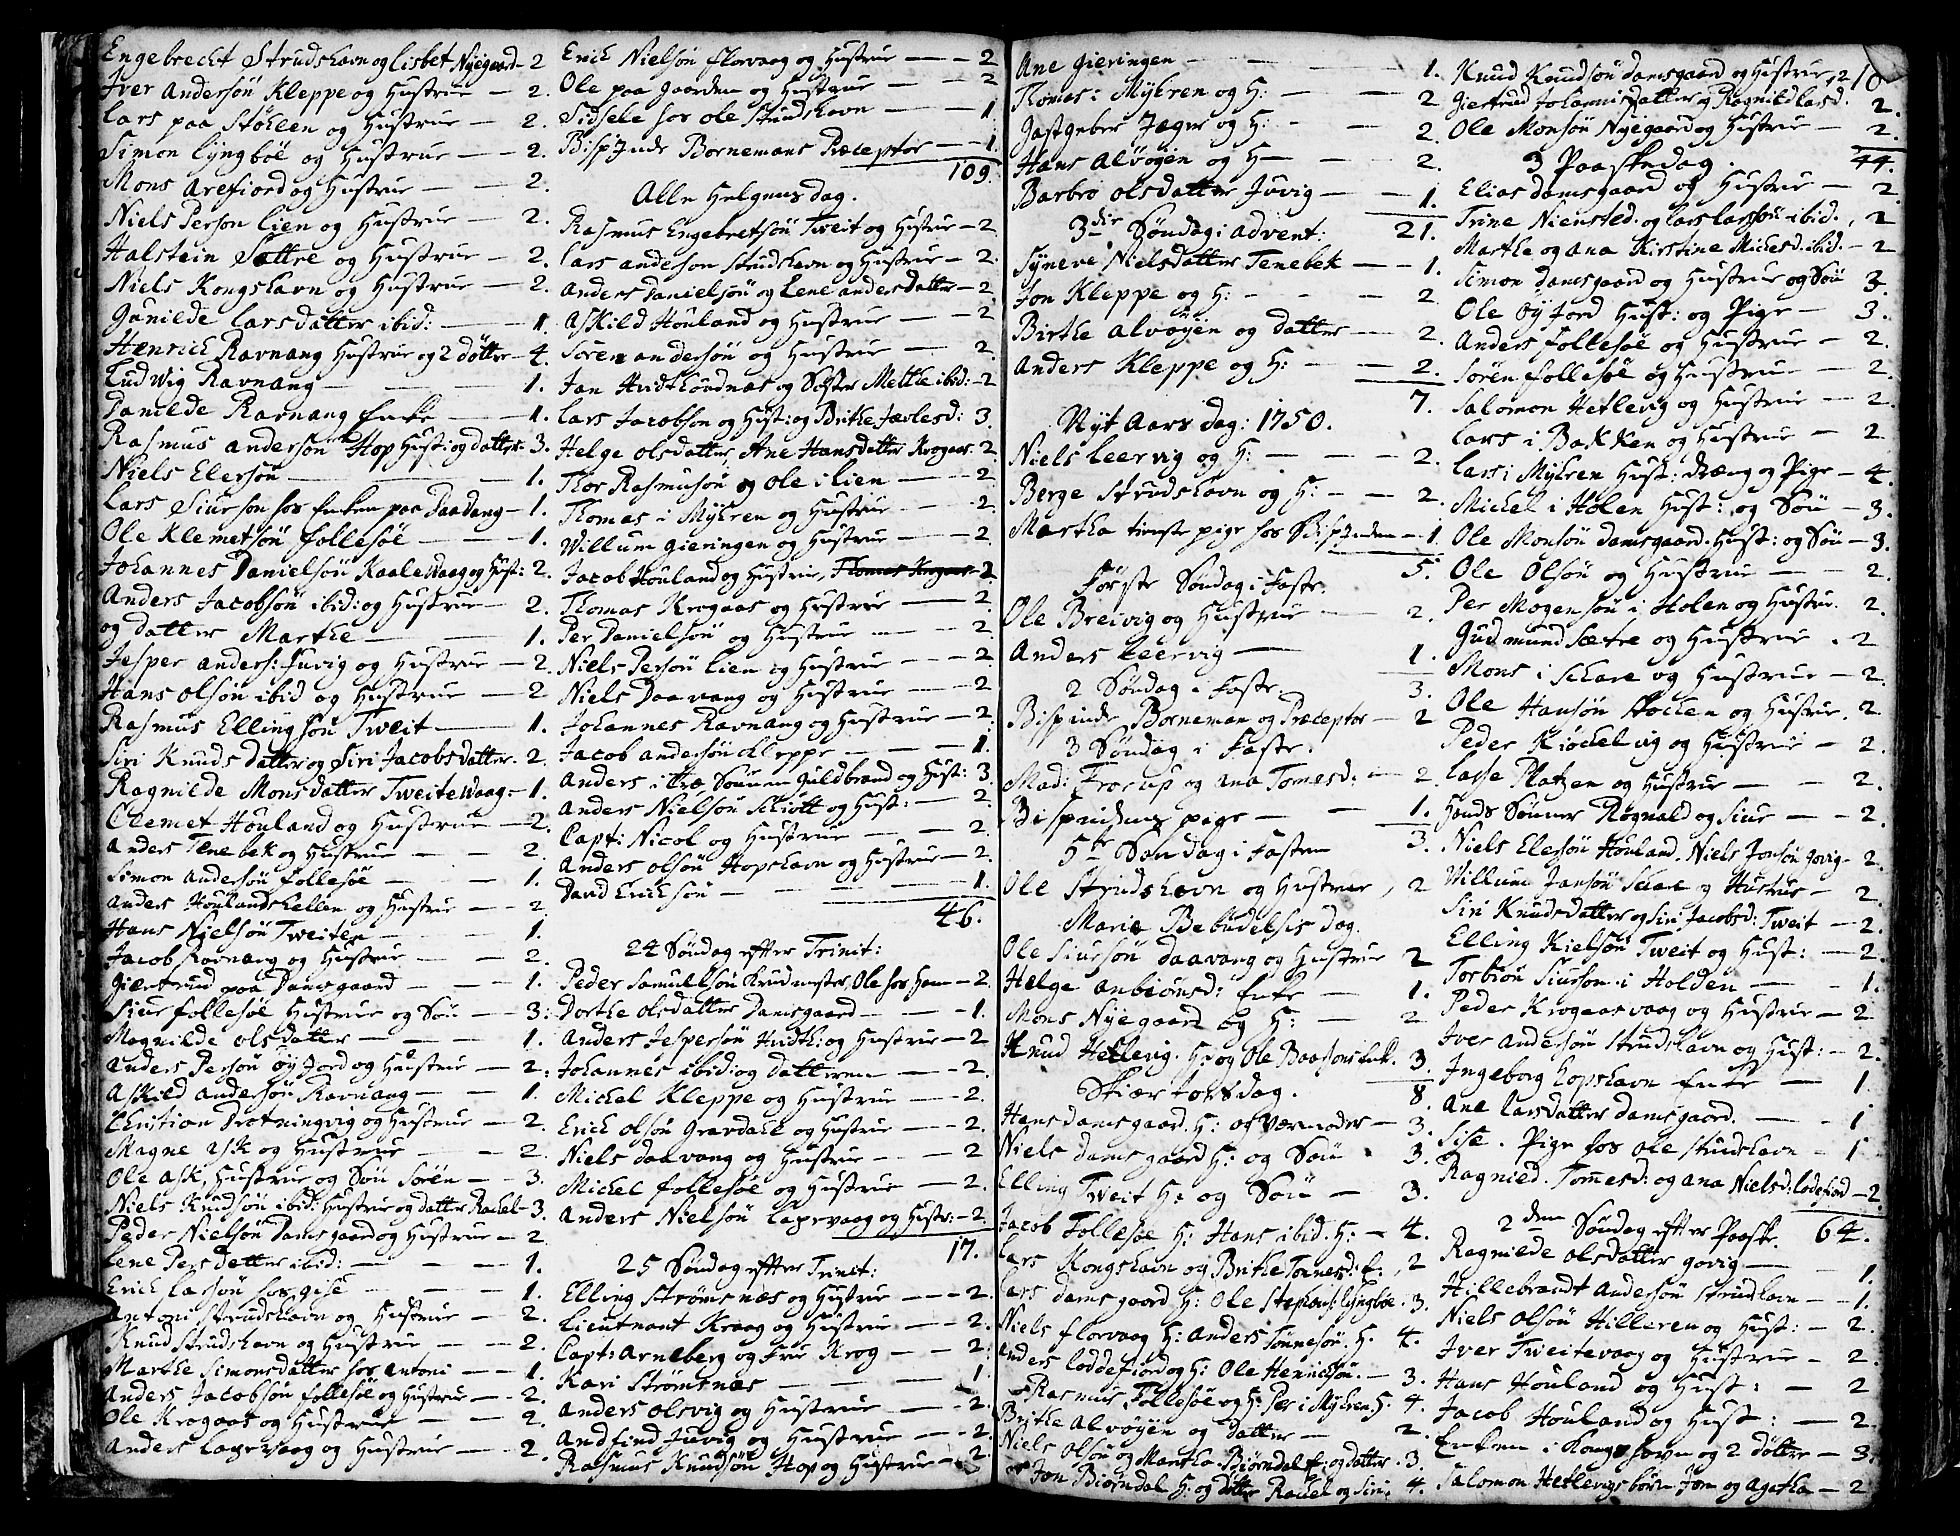 Engebrecht Strudshavn og Lisbet Nyegaard – 2
Iver Andersön Kleppe og Hustrue – 2.
Lars paa Stöhlen og Hustrue – 2.
Simon Lyngböe og Hustrue – 2.
Mons Arefiord og Hustrue – 2.
Niels Person Lien og Hustrue – 2.
Halstein Sættre og Hustrue – 2.
Niels Kongshavn og Hustrue – 2.
Gunilde Larsdatter ibid: – 1.
Henrich Ravnang Hustrue og 2 döttre – 4.
Ludwig Ravnang – 1.
Ravnang Enke – 1.
Rasmus Anderson Hop Hust: og datter – 3.
Niels Elersön – 1.
Lars Siurson hos Enken paa Daadang – 1.
Ole Klemetsön Follesöe – 1.
Johannes Danielsön Kaalewaag og Hust: 2.
Anders Jacobsön ibid: og Hustrue – 2.
og datter Marthe – 1.
Jesper Anders: Juvig og Hustrue – 2.
Hans Olsön ibid og Hustrue – 2
Rasmus Ellingsön Tweit – 1.
Siri Knudsdatter og Siri Jacobsdatter. 2.
Ragnilde Monsdatter Tweitewaag – 1.
Clemet Houland og Hustrue – 2.
Anders Tenebek og Hustrue – 2.
Simon Andersön Follesöe – 1.
Anders Houlandshellen og Hustrue – 2.
Hans Nielsön Tweiten – 1.
Jacob Ravnang og Hustrue – 2.
Giertrud paa Damsgaard – 1.
Siur Follesöe Hustrue og Sön – 3.
Magnilde Olsdatter – 1.
Anders Persön Öyjord og Hustrue – 2.
Askild Andersön Ravnang – 1.
Christian Drotningvig og Hustrue – 2.
Magne Ask og Hustrue – 2.
Ole Ask, Hustrue og Sön Sören – 3.
Niels Knudsön ibid: Hustrue og datter Rachel – 3.
Peder Nielsön Damsgaard og Hustrue – 2
Lene Persdatter ibid: – 1.
Erich Larsön hos – 1.
Antoni Strudshavn og Hustrue – 2.
Knud Strudshavn og Hustrue – 2.
Marthe Simonsdatter hos Antoni – 1.
Anders Jacobsön Follesöe og Hustrue – 2.
Ole Krogaas og Hustrue – 2.
Anders Lagewaag og Hustrue – 2.
Erich Nielsön Florvaag og Hustrue – 2
Ole paa Gaarden og Hustrue – 2
Sidsele hos Ole Strudshavn – 1
Bispinde Bornemans Præceptor – 1.
109.
Alle Helgens dag.
Rasmus Engebretsön Tweit og Hustrue – 2
Lars Anderson Strudshavn og Hustrue – 2.
Anders Danielsön og Lene Andersdatter – 2
Askild Houland og Hustrue – 2
Sören Andersön og Hustrue – 2.
Jan og Söster Mette ibid: – 2
Lars Jacobson og Hust: og Brithe 3.
Helge Olsdatter, Ane Hansdatter Krogaas 2
Thor Rasmusön og Ole i Lien – 2
Thomas i Myhren og Hustrue – 2.
Willum Gieringen og Hustrue – 2
Jacob Houland og Hustrue, Thomas Krogaas – 2
Thomas Krogaas og Hustrue – 2.
Per Danielsön og Hustrue – 2
Niels Persön Lien og Hustrue – 2
Niels Daavang og Hustrue – 2
Johannes Ravnang og Hustrue – 2.
Jacob Andersön Kleppe – 1.
Anders i Træ, Sönnen Guldbrand og Hust: 3.
Anders Nielsön Schiött og Hust: – 2
Capt: Nicol og Hustrue – 2.
Anders Olsön Hopshavn og Hustrue – 2.
David Erichsön – 1.
46.
24 Söndag efter Trinit:
Peder Samuelsön Ole hos Ham – 2.
Dorthe Olsdatter Damsgaard – 1.
Anders Jespersön og Hustrue – 2
Johannes ibid: og datteren – 2.
Michel Kleppe og Hustrue – 2.
Erich Olsön Gravdahl og Hustrue – 2.
Niels Daavang og Hustrue – 2
Michel Follesöe og Hustrue – 2.
Anders Nielsön og Hustr: – 2
17.
25 Söndag efter Trinit:
Elling Strömsnæs og Hustrue – 2.
Lieutnant Kraag og Hustrue – 2.
Capt: Arneberg og Frue Krog – 2:
Kari Strömsnæs – 1
Anders Olsvig og Hustrue – 2.
Andfind Juvig og Hustrue – 2.
Rasmus Knudsön Hop og Hustrue – 2.
Ane Gieringen – 1.
Thomas i Myhren og H: – 2
Gastgeber Jæger og H: – 2.
Hans Alvöyen og H – 2.
Barbro Olsdatter Juvig – 1.
3die Söndag i Advent: 21.
Syneve Nielsdatter Tenebek – 1.
Jon Kleppe og H: – 2
Birthe Alvöyen og datter – 2.
Anders Kleppe og H: – 2.
7.
Nyt Aars dag: 1750.
Niels Leervig og H: – 2.
Berge Strudshavn og H: – 2.
Martha tieneste pige hos Bispinden – 1.
5.
Förste Söndag i Faste.
Ole Breivig og Hustrue – 2
Anders Leervig – 1.
2 Söndag i Faste 3.
Bispinde Borneman og Præceptor – 2
3 Söndag i Faste.
Mad: Frorup og Ana Tomesd: – 2
Bispindens pige – 1.
3.
5te Söndag i Fasten
Ole Strudshavn og Hustrue, 2
Mariæ Bebudelsis dag.
Ole Siursön Daavang og Hustrue 2
Helge Anbiörnsd: Enke – 1.
Mons Nyegaard og H: – 2
Knud Hetlevig. H: og Ole Baarsons Enk. 3.
Skiær torsdag. 8.
Hans Damsgaard. H: og Værmoder – 3.
Niels Damsgaard H: og Sön 3.
Elling Tweit H: og Sön – 3.
Jacob Follesöe H: Hans ibid. H: – 4.
Lars Kongshavn og Brithe Tornesd: E:, 2
Lars Damsgaard H: Ole Stephens: Lyngböe. 3.
Niels Florvaag H: Anders Tönnesön. H. 4.
Anders Loddefiord og H: Ole Henricsön. – 3.
Rasmus Follesöe og H: Per i Myhren H. 4.
Brithe Alvöyen og datter – 2.
Niels Olsön og Martha Biörndal E: og datter. 3.
Jon Biörndal H: og dötter Rachel og Siri. 4.
10
Knud Knudsön Damsgaard og Hustrue, 2
Giertrud Johannisdatter og Ragnild Larsd: 2.
Ole Monsön Nyegaard og Hustrue – 2.
3 Paaskedag. 44.
Elias Damsgaard og Hustrue – 2.
Trine Niensted: og Lars Larssön ibid., 2
Marthe og Ana Kirstine Michesd: ibid. – 2
Simon Damsgaard og Hustrue og Sön 3.
Ole Öyjord Hust: og Pige – 3.
Anders Follesöe og Hustrue – 2.
Sören Follesöe og Hustrue – 2.
Salomon Hetlevig og Hustrue – 2.
Lars i Bakken og Hustrue – 2
Lars i Myhren Hust: dræng og Pige – 4.
Michel i Holen Hust: og Sön – 3.
Ole Monsön Damsgaard. Hust: og Sön – 3.
Ole Olsön og Hustrue – 2.
Per Mogensön i Holen og Hustru. 2.
Gudmund Sætre og Hustrue. 2
Mons i Schare og Hustrue – 2.
Ole Hansön Stochen og Hustrue. 2.
Peder Kiöckelvig og Hustrue – 2.
Lasse Platzen og Hustrue – 2.
Sönner Rognald og Siur – 2.
Niels Elesön Houland. Niels Jonsön Govig – 2.
Willum Jansön Schare og Hustrue – 2.
Siri Knudsdatter og Siri Jacobsd: Tweit – 2.
Elling Kielsön Tweit og Hust: – 2.
Torbiön Siurson i Holden – 1.
Peder Krogaasvaag og Hustrue – 2
Iver Andersön Strudshavn og Hust: – 2.
Ingeborg Hopshavn Enke – 1.
Ane Larsdatter Damsgaard. – 1
Sise. Pige hos Ole Strudshavn – 1
Ragnied. Tomesd: og Ana Nielsd: Lodefiord – 2
2den Söndag efter Paaske. 64.
Ragnilde Olsdatter Govig – 1.
Hillebrandt Andersön Strudshavn – 1.
Niels Olsön Hilleren og Hust: – 2.
Iver Tweitevaag og Hustrue – 2.
Hans Houland og Hust: – 2
Jacob Houland og Hust: – 2.
Enken i Kongshavn og 2 döttre – 3.
Salomon Hetlevigs börn Jon og Agatha – 2